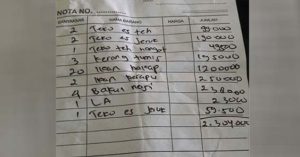 NOTA NO.
BANYAKNYA NAMA BARANG HARGA JUMLAH
2 Teko es teh
2 Teko es jeruk 130000
1 Teko teh hangat
3 Kerang tumis 195000
20 Ikan bakar 1200000
2 Ikan kerapu 250000
4 Bakul nasi
1 LA 23000
1 Teko es jeruk 59.500